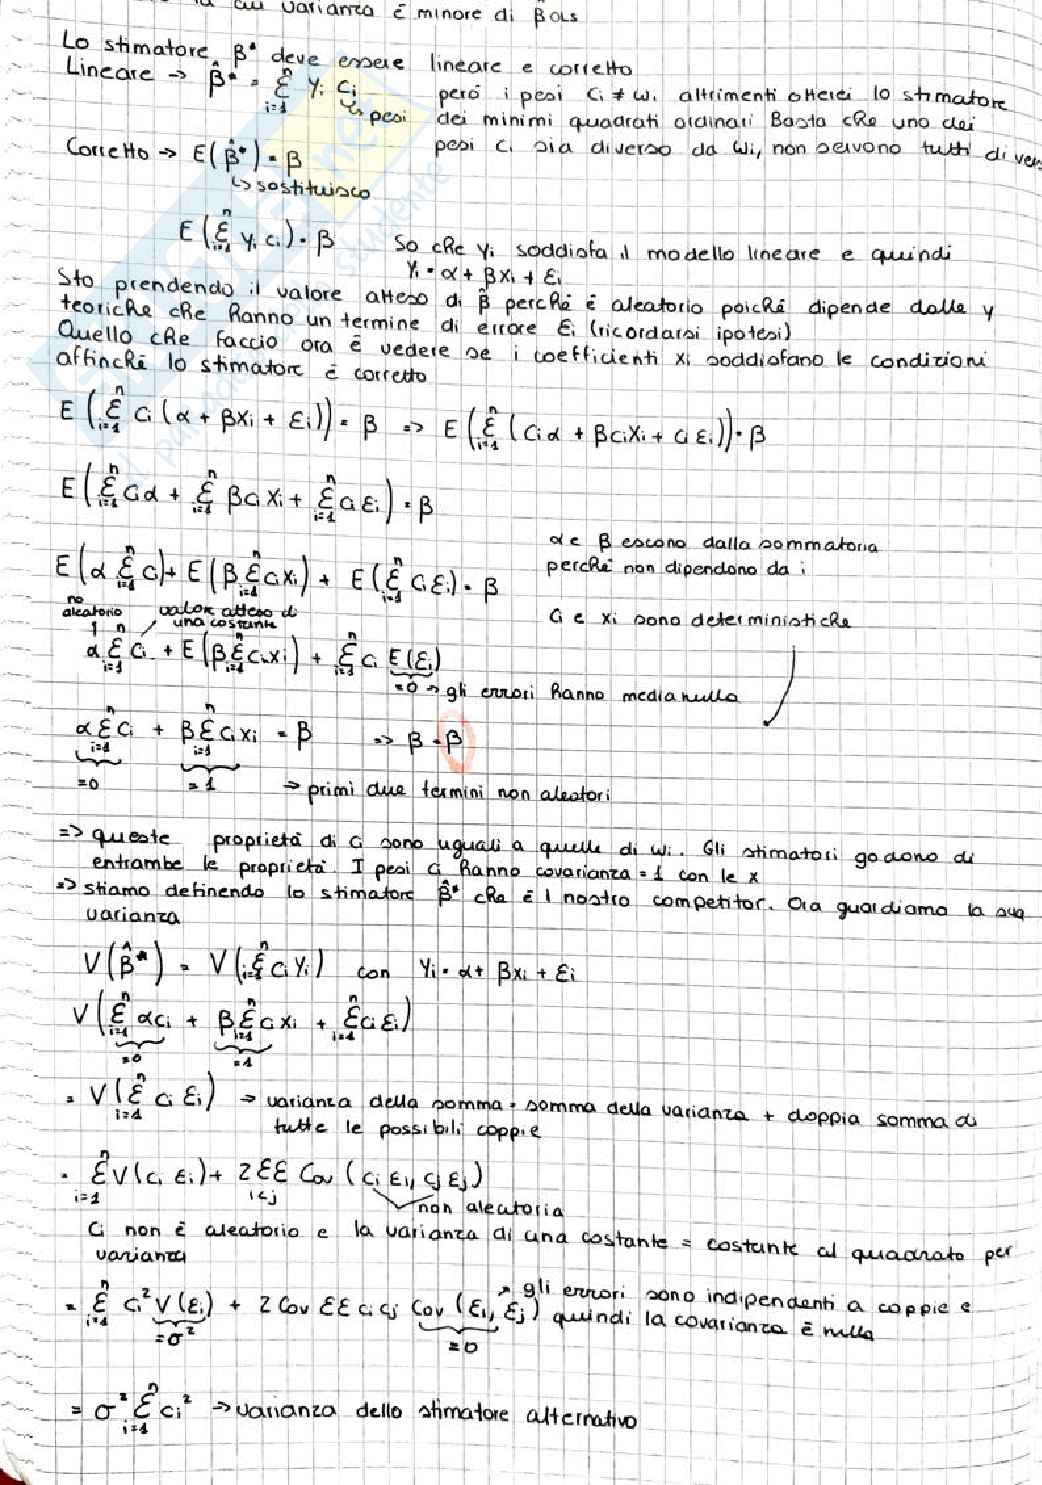 la cui varianza è minore di β̂ OLS
Lo stimatore β̂* deve essere lineare e corretto
Lineare → β̂* = Σ(i=1..n) yi ci però i pesi ci ≠ wi altrimenti otterrei lo stimatore
↳ pesi dei minimi quadrati ordinari Basta che uno dei
pesi ci sia diverso da wi, non servono tutti diver
Corretto → E(β̂*) = β
↳ sostituisco
E(Σ(i=1..n) yi ci) = β So che yi soddisfa il modello lineare e quindi
yi = α + βxi + εi
Sto prendendo il valore atteso di β̂ perché è aleatorio poiché dipende dalle y
teoriche che hanno un termine di errore εi (ricordarsi ipotesi)
Quello che faccio ora è vedere se i coefficienti xi soddisfano le condizioni
affinché lo stimatore è corretto
E(Σ(i=1..n) ci(α + βxi + εi)) = β => E(Σ(i=1..n) (ciα + βcixi + ciεi)) = β
E(Σ(i=1..n) ciα + Σ(i=1..n) βcixi + Σ(i=1..n) ciεi) = β
α e β escono dalla sommatoria
perché non dipendono da i
E(α Σ(i=1..n) ci) + E(β Σ(i=1..n) cixi) + E(Σ(i=1..n) ciεi) = β
no aleatorio valore atteso di una costante
ci e xi sono deterministiche
α Σ(i=1..n) ci + E(β Σ(i=1..n) cixi) + Σ(i=1..n) ci E(εi)
=0 → gli errori hanno media nulla
α Σ(i=1..n) ci + β Σ(i=1..n) cixi = β => β = β
=0 =1 => primi due termini non aleatori
=> queste proprietà di ci sono uguali a quelle di wi. Gli stimatori godono di
entrambe le proprietà. I pesi ci hanno covarianza = 1 con le x
=> stiamo definendo lo stimatore β̂* che è il nostro competitor. Ora guardiamo la sua
varianza
V(β̂*) = V(Σ(i=1..n) ciyi) con yi = α + βxi + εi
V(Σ(i=1..n) αci + β Σ(i=1..n) cixi + Σ(i=1..n) ciεi)
=0 =1
= V(Σ(i=1..n) ci εi) → varianza della somma = somma della varianza + doppia somma di
tutte le possibili coppie
= Σ(i=1..n) V(ci εi) + 2ΣΣ(i<j) Cov(ci εi, cj εj)
non aleatoria
ci non è aleatorio e la varianza di una costante = costante al quadrato per
varianza
= Σ(i=1..n) ci² V(εi) + 2 Cov ΣΣ ci cj Cov(εi, εj) → gli errori sono indipendenti a coppie e
quindi la covarianza è nulla
=σ² =0
= σ² Σ(i=1..n) ci² → varianza dello stimatore alternativo